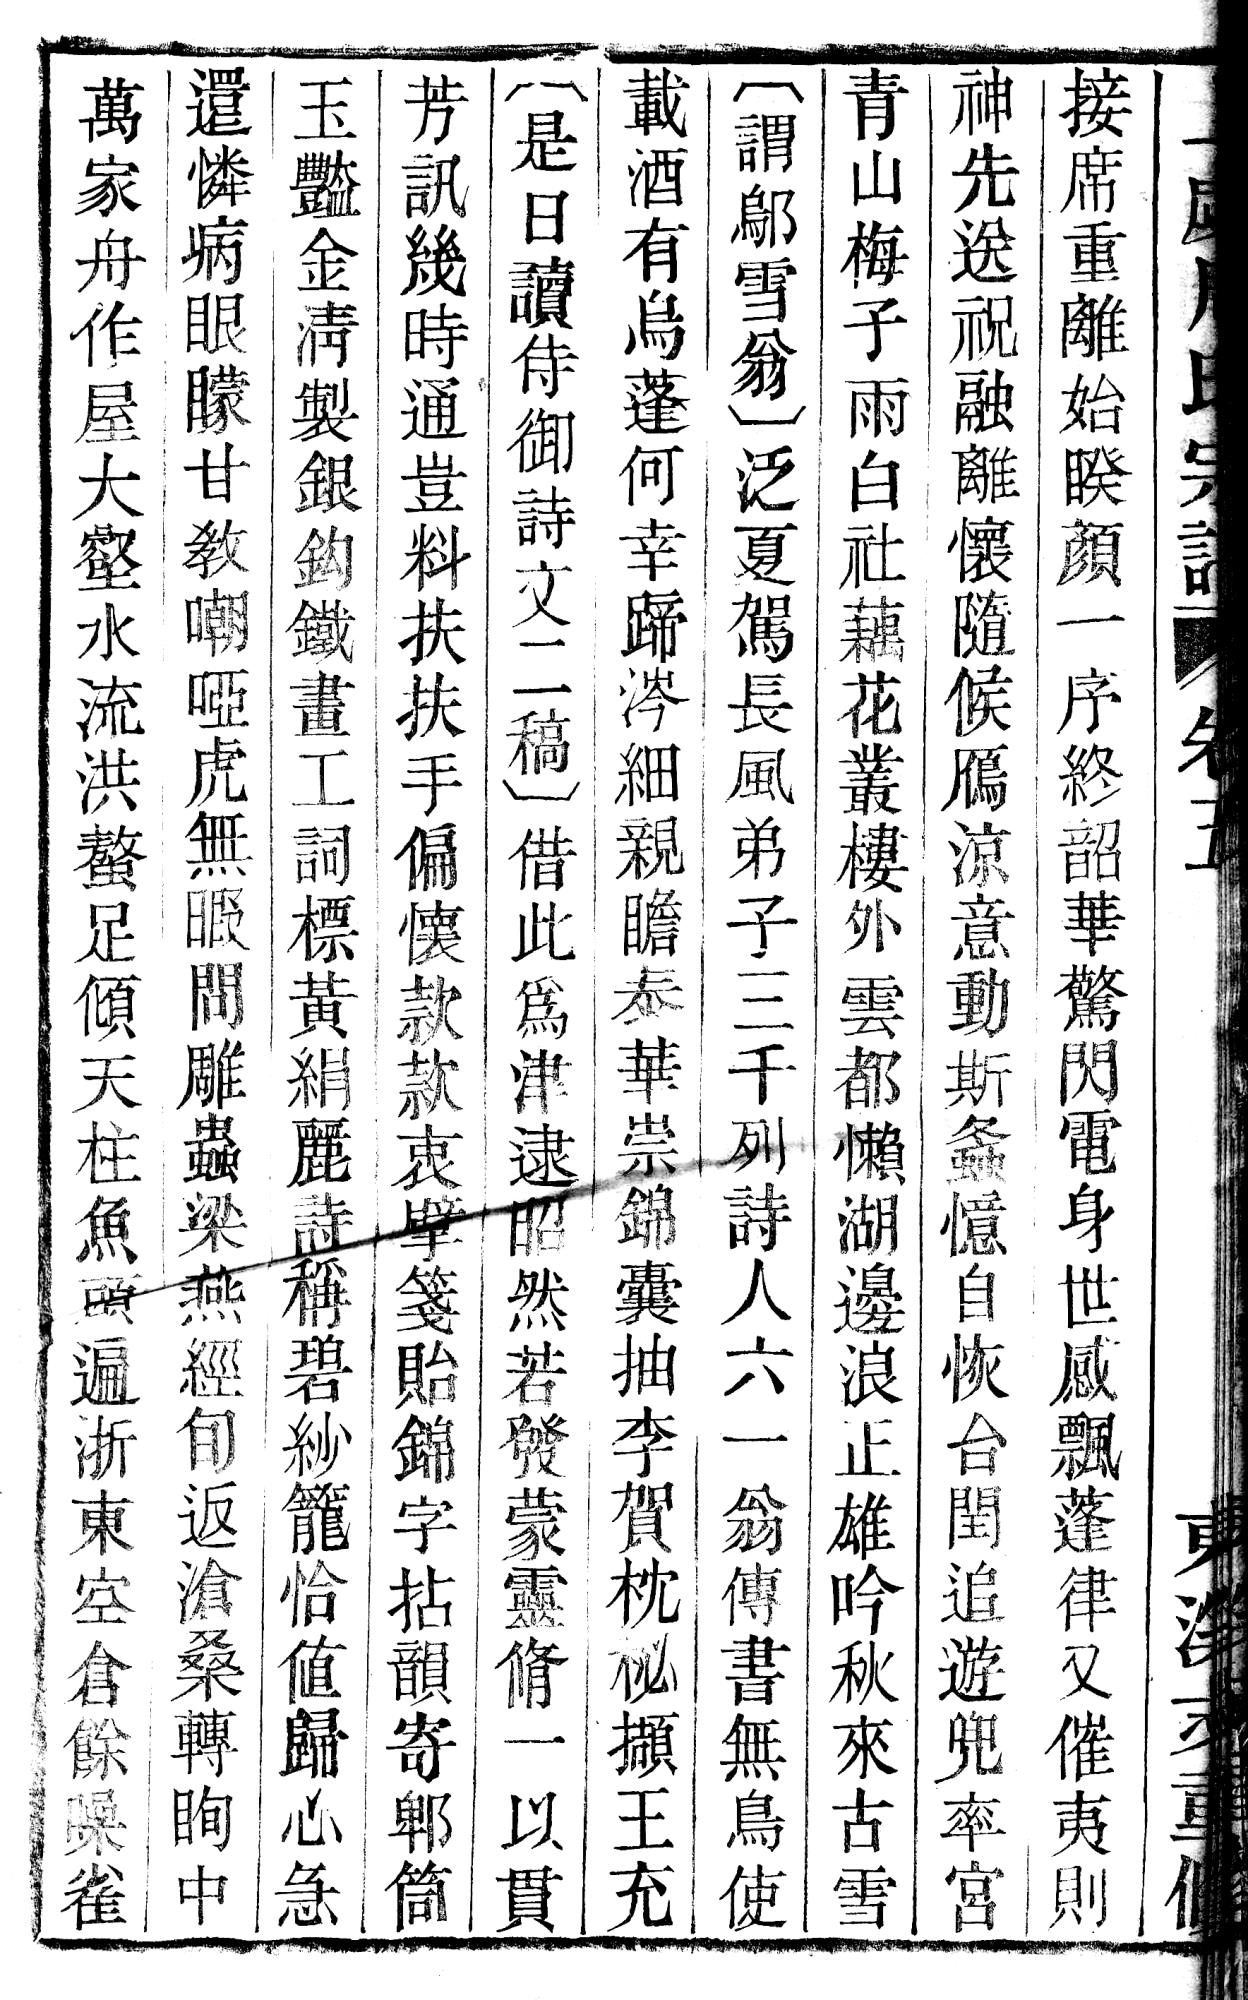 接席重離始睽顏一序終韶華驚閃電身世感飄蓬律又催夷則
神先送祝融離懷隨候鴈涼意動斯螽憶自恢台閏追遊兜率宮
青山梅子雨白社藕花叢樓外雲都懶湖邊浪正雄吟秋來古雪
〔謂鄔雪翁〕泛夏駕長風弟子三千列詩人六一翁傳書無鳥使
載酒有烏蓬何幸蹄涔細親瞻泰華崇錦囊抽李賀枕祕擷王充
〔是日讀侍御詩文二稿〕借此為津逮昭然若發蒙靈脩一以貫
芳訊幾時通豈料扶扶手偏懷款款衷擘箋貽錦字拈韻寄郫筒
玉豔金淸製銀鈎鐵畫工詞標黃絹麗詩稱碧紗籠恰値歸心急
還憐病眼矇甘教嘲啞虎無暇問雕蟲梁燕經旬返滄桑轉眴中
萬家舟作屋大壑水流洪鼇足傾天柱魚頭遍浙東空倉餘噪雀
卷五